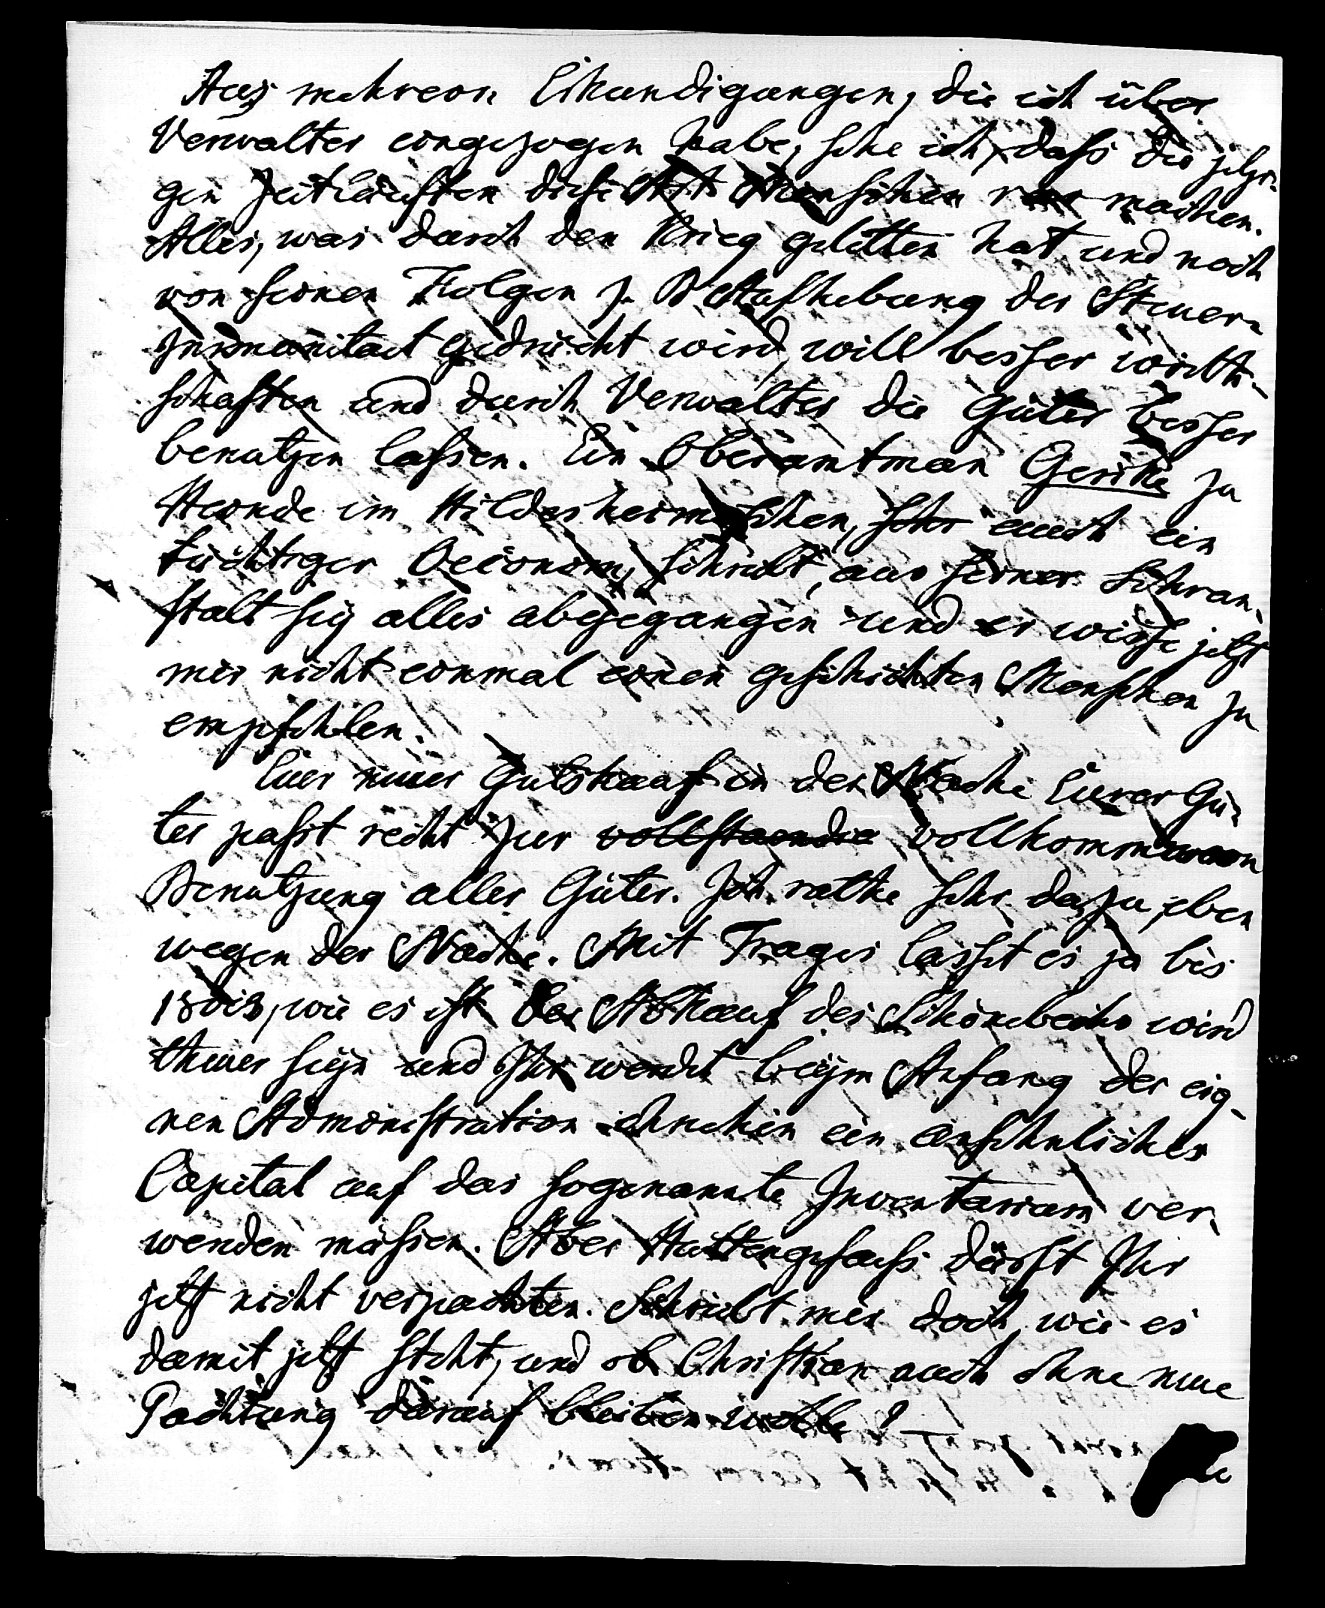 Aus mehreren Erkundigungen, die ich über
Verwalter eingezogen habe, sehe ich, dass die jetzi-
gen Zeitläuften diese Art Menschen rar machen.
Alles, was durch den Krieg gelitten hat und noch
von seinen Folgen z. B Aufhebung der Steuer-
Immunitaet gedrückt wird, will besser wirth-
schaften und durch Verwalter die Güter besser
benutzen lassen. Ein Oberamtman Gerike zu
Steorde im Hildesheimischen, sehr auch ein
tüchtiger Oeconom, schreibt, aus seiner Lehran-
stalt sey alles abgegangen und er wisse jetzt
mir nicht einmal einen geschickten Menschen zu
empfehlen.
Euer neuer Gutskauf in der Nache Eurer Gü-
ter passt recht zur vollstaendie vollkommenen
Benutzung aller Güter. Ich rathe sehr dazu, eben
wegen der Nache. Mit Trages lasst es ja bis
wie es ist. Der Abkauf des Schönebecks wird
theuer seyn und Ihr werdet beym Anfang der eig-
nen Administration ohnehin ein ansehnliches
Capital auf das sogenannte Inventarium ver-
wenden müssen. Aber Hüttengesaess dürft Ihr
jetzt nicht verpachten. Schreibt mir doch, wie es
damit jetzt steht, und ob Christian auch ohne neue
Pachtung darauf bleiben wolle?